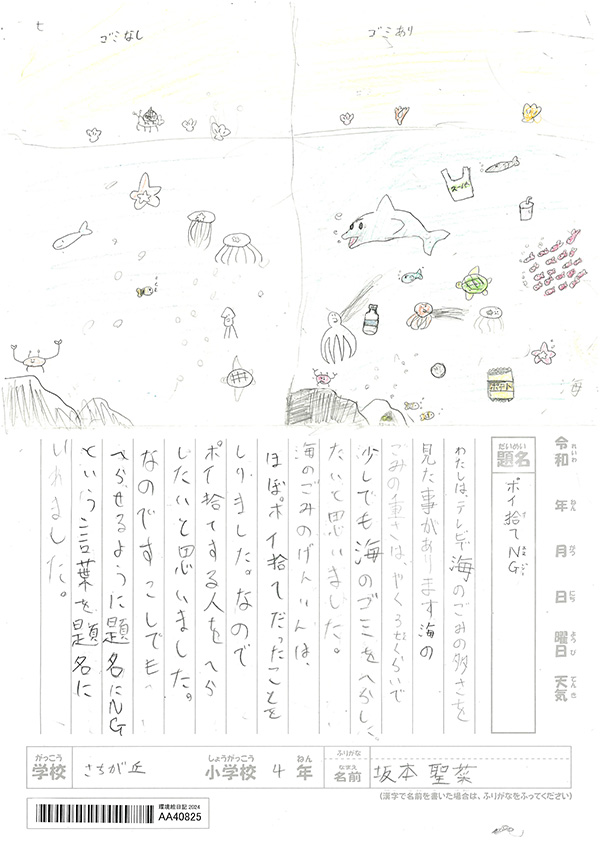 ゴミなし
ゴミあり
スーパー
令和 年 月 日 曜日 天気
れいわ ねん がつ にち ようび てんき
だいめい
題名
ポイ捨てNG
わたしは、テレビで海のごみの多さを
見た事があります海の
ごみの重さは、やく
少しでも海のゴミをへらし
たいと思いました。
海のごみのげんいんは、
ほぼ。ポイ捨てだったことを
しりました。なので
ポイ捨てする人をへら
したいと思いました。
なのですこしでも
へらせるように題名にNG
という言葉を題名に
いれました。
がっこう
学校
さちが丘
しょうがっこう
小学校
4
ねん
年
ふりがな
なまえ
名前
坂本 聖菜
(漢字で名前を書いた場合は、ふりがなをふってください)
環境絵日記 2024
AA40825